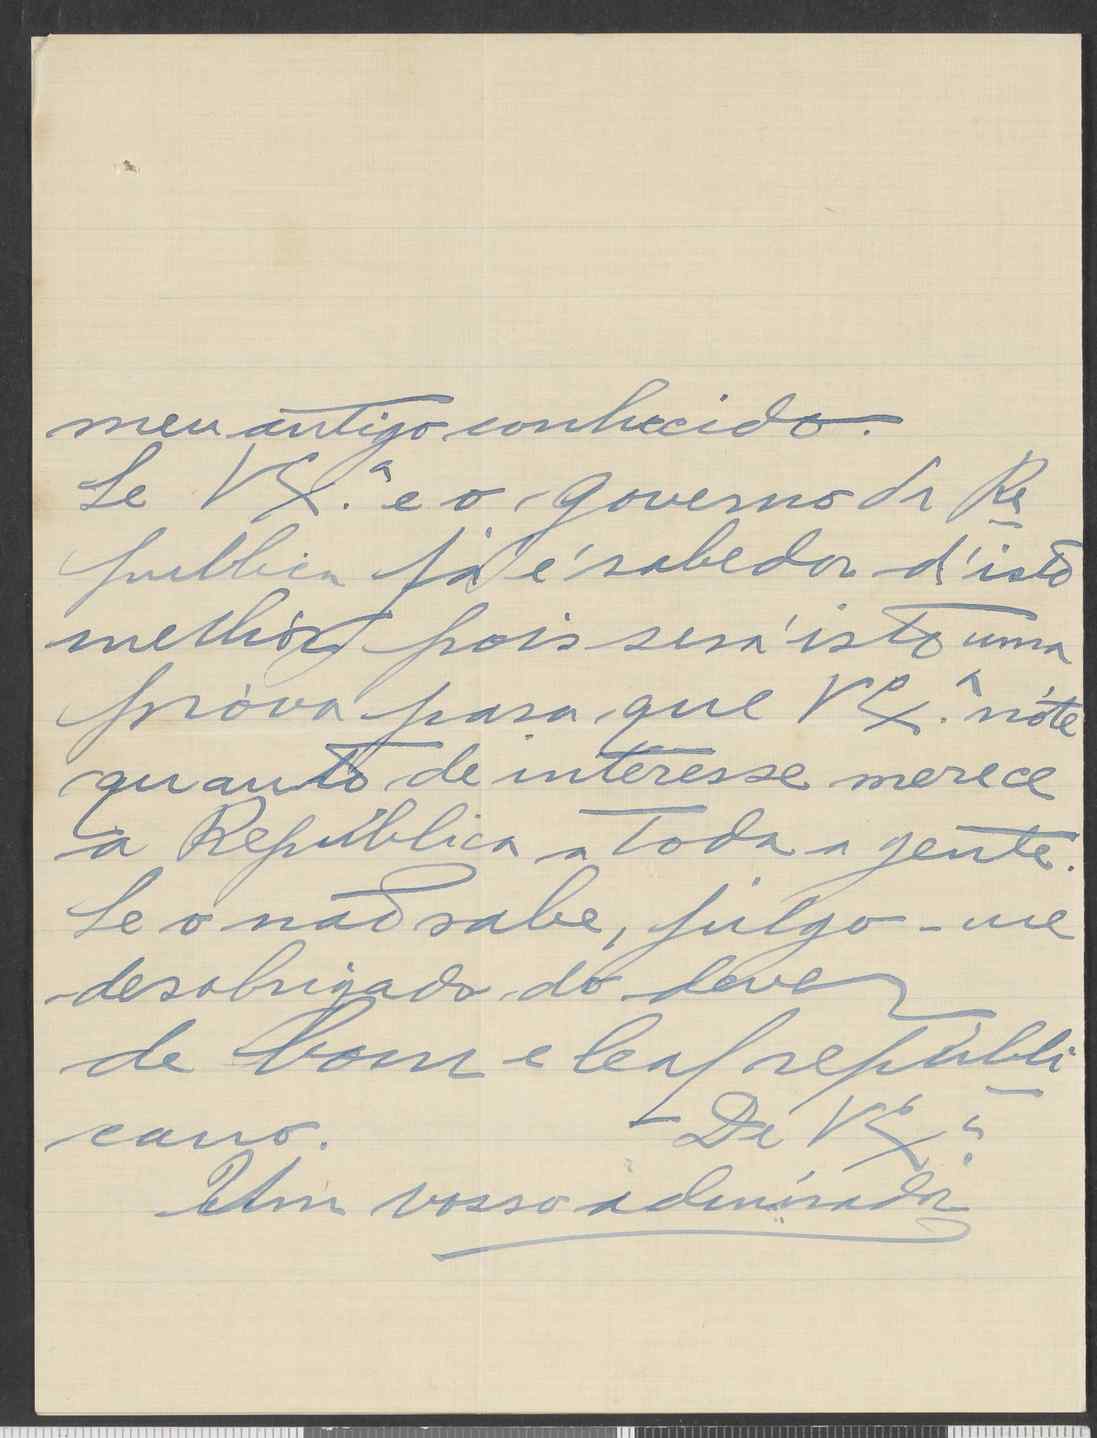 meu antigo conhecido.
Se VEx.ª e o governo da Re
publica já é sabedor d'isto
melhor, pois será isto uma
próva para que VEx.ª nóte
quanto de interesse merece
a República a toda a gente.
Se o não sabe, julgo-me
desobrigado do dever
de bom e leal républi
cano. - De VEx.ª
Um vosso admirador